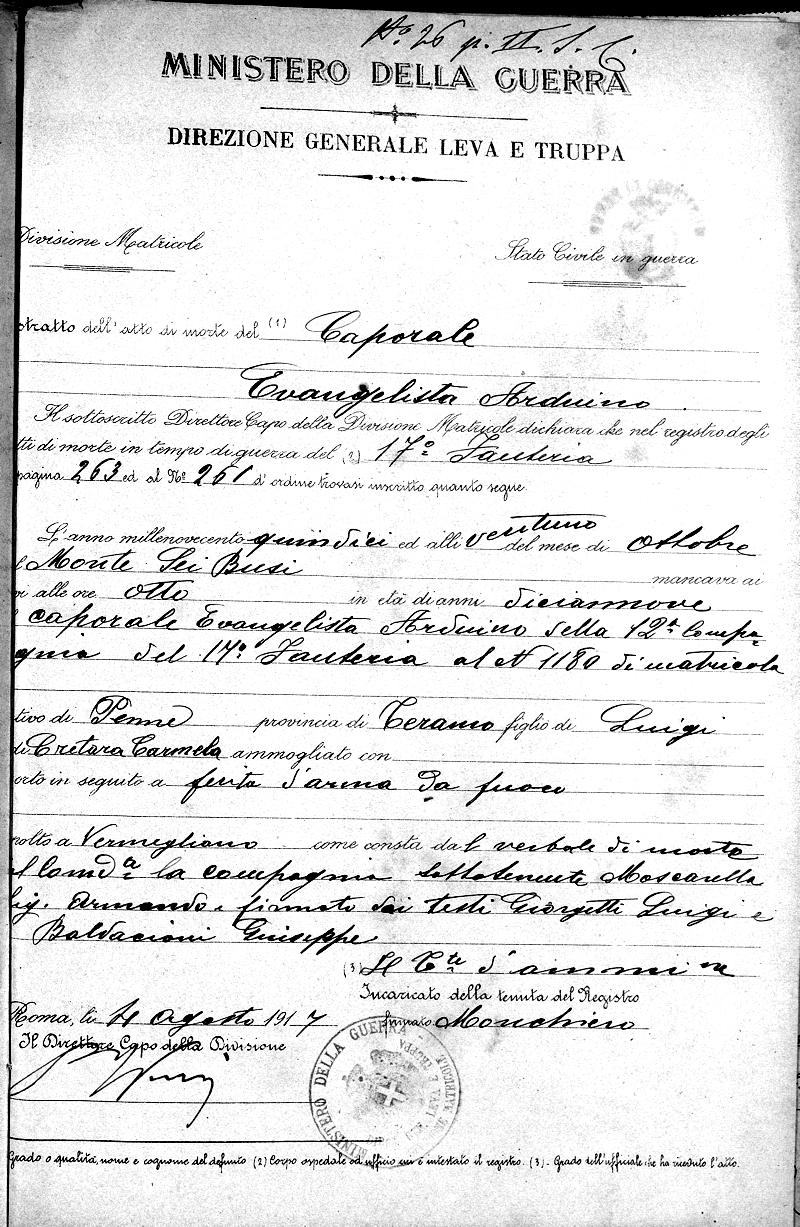 No. 26 p. II. S. C.
MINISTERO DELLA GUERRA
DIREZIONE GENERALE LEVA E TRUPPA
Divisione Matricole
Stato Civile in guerra
stratto dell'atto di morte del (1) Caporale
Evangelista Arduino
Il sottoscritto Direttore Capo della Divisione Matricole dichiara che nel registro degli
tti di morte in tempo di guerra del (2) 17º Fanteria
pagina 263 ed al Nº 261 d'ordine trovasi inscritto quanto segue.
L'anno millenovecento quindici ed alli ventuno del mese di Ottobre
l Monte Sei Busi mancava ai
vi alle ore otto in età di anni diciannove
l caporale Evangelista Arduino della 12ª Compa-
gnia del 17º Fanteria al N 1180 di matricola
tivo di Penne provincia di Teramo figlio di Luigi
di Cretara Carmela ammogliato con
orto in seguito a ferita d'arma da fuoco
polto a Vermegliano come consta dal verbale di morte
l Comdª la compagnia sottotenente Moscarella
Sig. Armando e firmato dai testi Giorgetti Luigi e
Baldacioni Giuseppe
(3) Il Tte d'ammine
Incaricato della tenuta del Registro
Roma, li 4 agosto 1917
firmato Monchiero
Il Direttore Capo della Divisione
MINISTERO DELLA GUERRA
Grado o qualità, nome e cognome del defunto (2) Corpo ospedale od ufficio cui è intestato il registro. (3) - Grado dell'ufficiale che ha ricevuto l'atto.